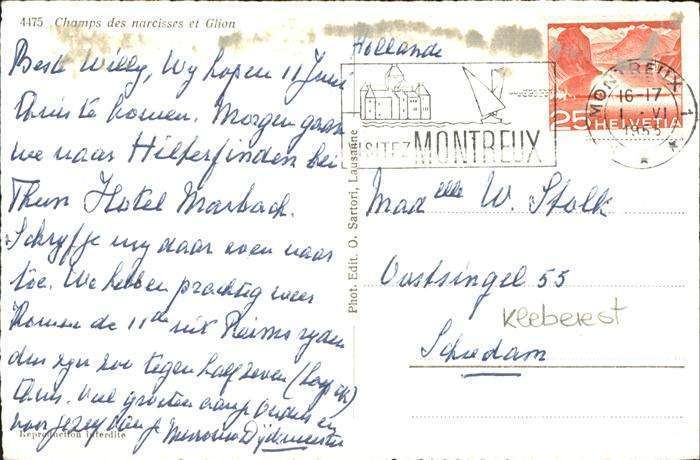 4475 Champs des narcisses et Glion
Beste Willy, Wy hopen 11 Juni
thuis te komen. Morgen gaan
we naar Hilterfinden bei
Thun Hotel Marbach.
Schryf je my daar even naar
toe. We hebben prachtig weer
komen de 11de uit Reims ryden
dus zyn zoo tegen half zeven (hoop ik)
thuis. Veel groeten aan je ouders en
voor jezelf van je Mevrouw Dijkmeester
Reproduction interdite
Phot. Edit. O. Sartori, Lausanne
Hollande
VISITEZ MONTREUX
MONTREUX 1
16-17
1. VI
1953
25 HELVETIA
Madelle W. Stolk
Oostsingel 55
Kleberest
Schiedam